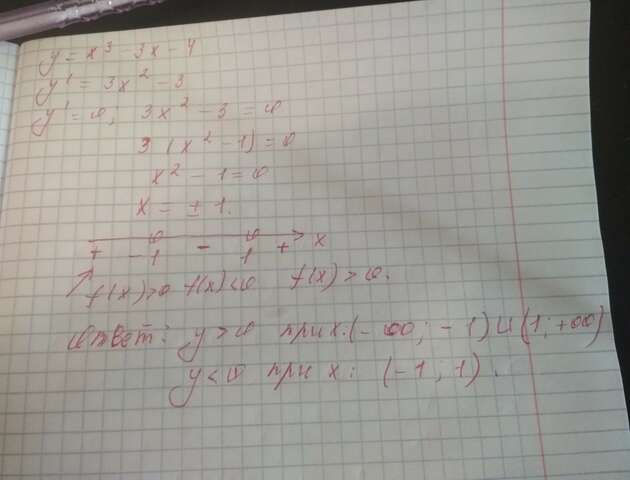 y = x³ - 3x - 4
y' = 3x² - 3
y' = 0; 3x² - 3 = 0
3 (x² - 1) = 0
x² - 1 = 0
x = ± 1.
0 0 x
+ - 1 - 1 +
f(x)>0 f(x)<0 f(x) > 0.
Ответ: y > 0 при x: (- ∞; - 1) U (1; +∞)
y < 0 при x: (- 1; 1).